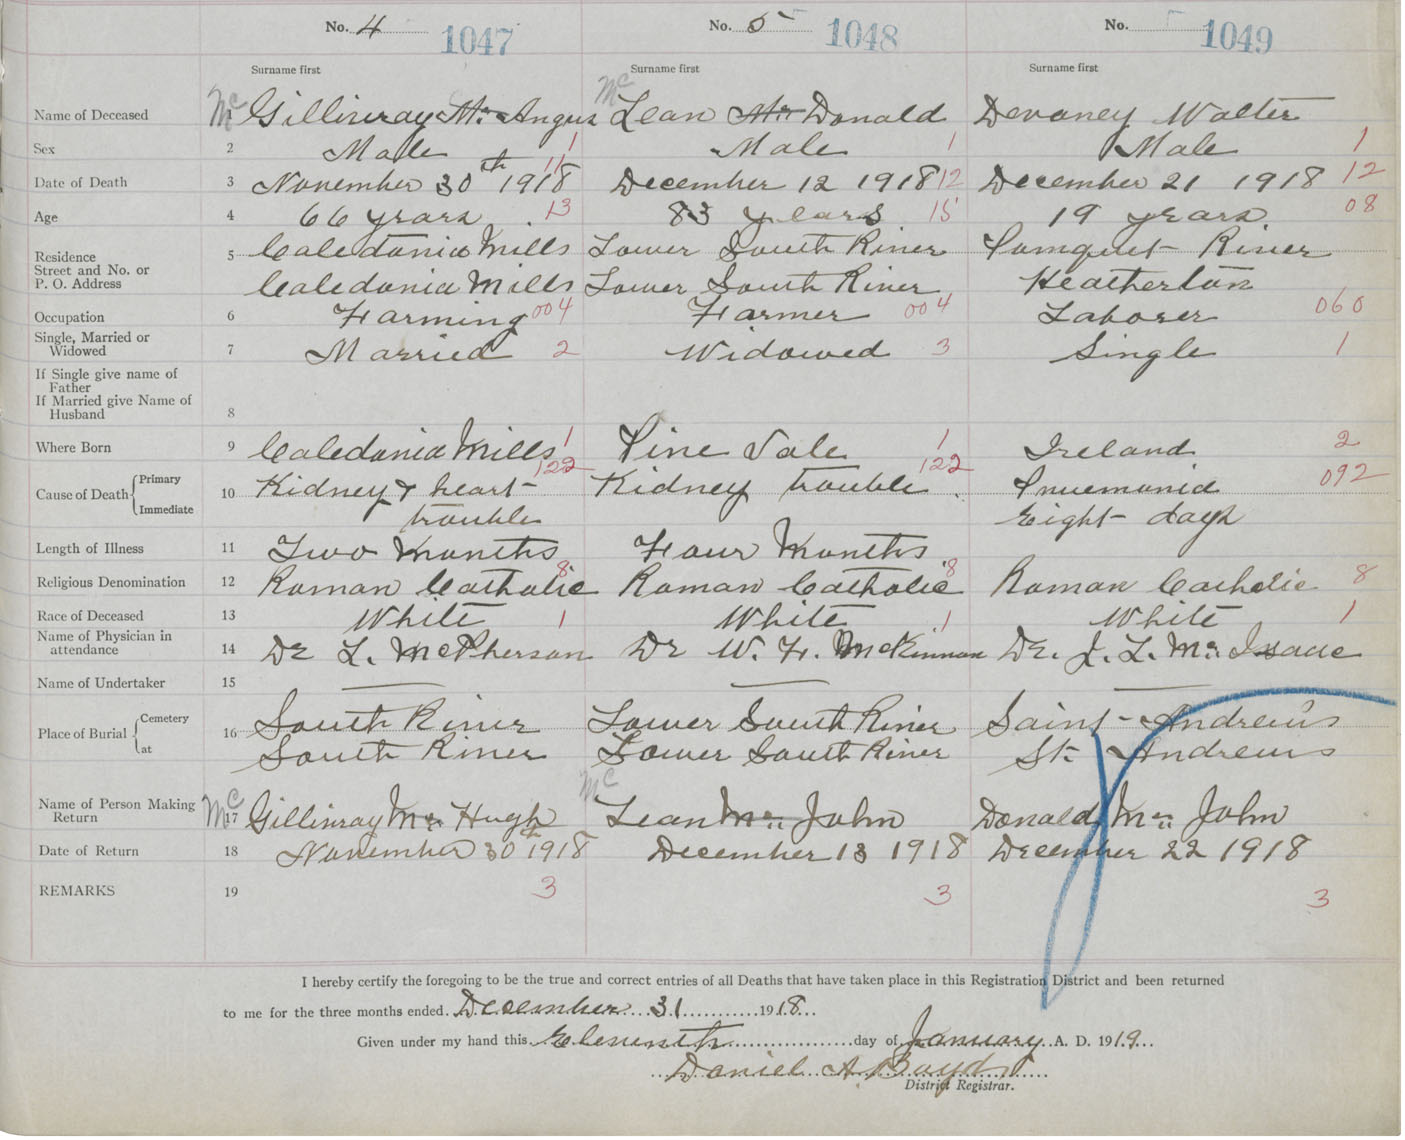 No. 4 1047 No. 5 1048 No. 1049
Surname first Surname first Surname first
Name of Deceased 1 Mc Gillivray Mc Angus Mc Lean Mc Donald Devaney Walter
Sex 2 Male 1 Male 1 Male 1
Date of Death 3 November 30th 1918 11 December 12 1918 12 December 21 1918 12
Age 4 66 years 13 83 years 15 19 years 08
Residence 5 Caledonia Mills Lower South River Pomquet River
Street and No. or
P. O. Address Caledonia Mills Lower South River Heatherton
Occupation 6 Farming 004 Farmer 004 Laborer 060
Single, Married or
Widowed 7 Married 2 Widowed 3 Single 1
If Single give name of
Father
If Married give Name of
Husband 8
Where Born 9 Caledonia Mills 1 Pine Vale 1 Ireland 2
Cause of Death { Primary Immediate 10 Kidney & heart 122 Kidney trouble 122 Pnuemonia 092
trouble Eight days
Length of Illness 11 Two Months Four Months
Religious Denomination 12 Roman Catholic 8 Roman Catholic 8 Roman Catholic 8
Race of Deceased 13 White 1 White 1 White 1
Name of Physician in
attendance 14 Dr L. McPherson Dr W. F. McKinnon Dr. J. L. Mc Isaac
Name of Undertaker 15
Place of Burial { Cemetery 16 South River Lower South River Saint Andrew's
at South River Lower South River St. Andrews
Name of Person Making
Return 17 Mc Gillivray Mc Hugh Mc Lean Mc John Donald Mc John
Date of Return 18 November 30th 1918 December 13 1918 December 22 1918
REMARKS 19 3 3 3
I hereby certify the foregoing to be the true and correct entries of all Deaths that have taken place in this Registration District and been returned
to me for the three months ended December 31 1918
Given under my hand this Eleventh day of January A. D. 1919
Daniel A. Boyd
District Registrar.